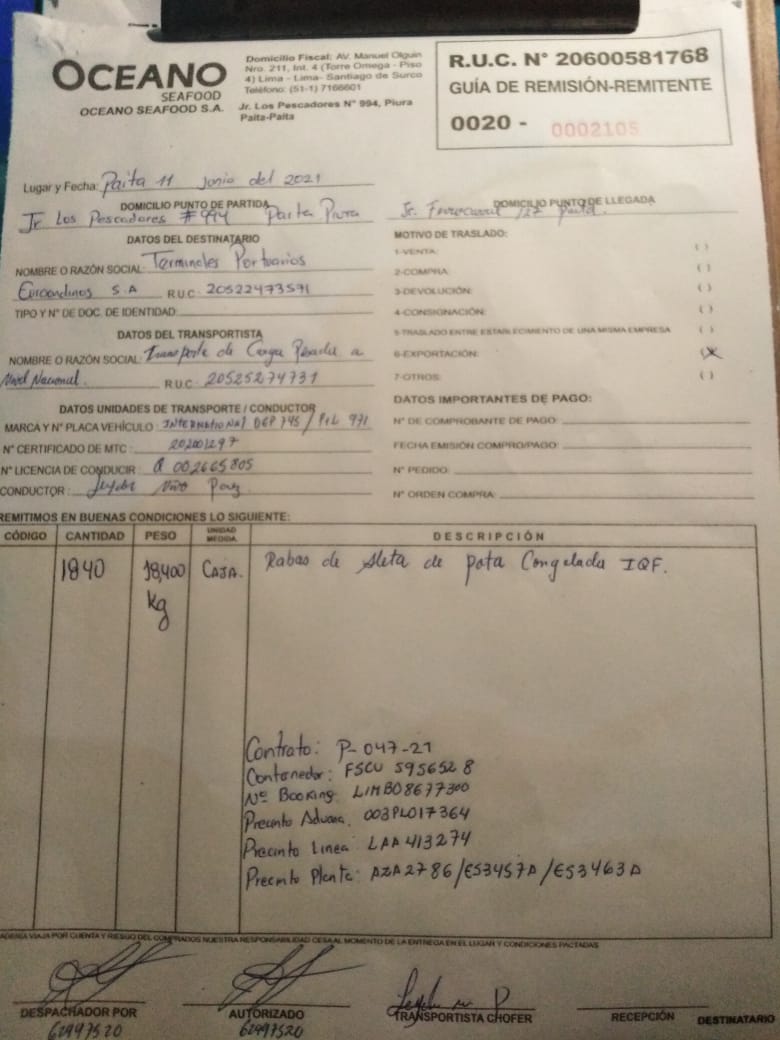 OCEANO
SEAFOOD
OCEANO SEAFOOD S.A.
Domicilio Fiscal: AV. Manuel Olguin
Nro. 211, Int. 4 (Torre Omega - Piso
4) Lima - Lima- Santiago de Surco
Teléfono: (51-1) 7166601
Jr. Los Pescadores N° 994, Piura
Paita-Paita
R.U.C. N° 20600581768
GUÍA DE REMISIÓN-REMITENTE
0020 - 0002105
Lugar y Fecha: Paita 11 Junio del 2021
DOMICILIO PUNTO DE PARTIDA
Jr Los Pescadores #994 Paita Piura
DOMICILIO PUNTO DE LLEGADA
Jr. Ferrocarril 127 Paita.
DATOS DEL DESTINATARIO
NOMBRE O RAZÓN SOCIAL: Terminales Portuarios
Euroandinos S.A RUC: 20522473571
TIPO Y N° DE DOC. DE IDENTIDAD:
DATOS DEL TRANSPORTISTA
NOMBRE O RAZÓN SOCIAL: Transporte de Carga Pesada a
Nivel Nacional. RUC: 20525274731
DATOS UNIDADES DE TRANSPORTE / CONDUCTOR
MARCA Y N° PLACA VEHÍCULO: INTERNATIONAL / P1L 971
N° CERTIFICADO DE MTC: 202001297
N° LICENCIA DE CONDUCIR: Q 002665805
CONDUCTOR:
MOTIVO DE TRASLADO:
1-VENTA: ( )
2-COMPRA: ( )
3-DEVOLUCIÓN: ( )
4-CONSIGNACIÓN: ( )
5-TRASLADO ENTRE ESTABLECIMIENTO DE UNA MISMA EMPRESA ( )
6-EXPORTACIÓN: (X)
7-OTROS: ( )
DATOS IMPORTANTES DE PAGO:
N° DE COMPROBANTE DE PAGO:
FECHA EMISIÓN COMPRO/PAGO:
N° PEDIDO:
N° ORDEN COMPRA:
REMITIMOS EN BUENAS CONDICIONES LO SIGUIENTE:
CÓDIGO CANTIDAD PESO UNIDAD MEDIDA DESCRIPCIÓN
1840 18,400 kg CAJA. Rabas de Aleta de pota Congelada IQF.
Contrato: P-047-21
Contenedor: FSCU 595652 8
N° Booking: LIMB08677300
Precinto Aduana: 003PL017364
Precinto Linea: LAA413274
Precinto Planta: AZA2786/ES3457A/ES3463A
VIAJA POR CUENTA Y RIESGO DEL COMPRADOS NUESTRA RESPONSABILIDAD CESA AL MOMENTO DE LA ENTREGA EN EL LUGAR Y CONDICIONES PACTADAS
DESPACHADOR POR
62497520
AUTORIZADO
62497520
TRANSPORTISTA CHOFER
RECEPCIÓN
DESTINATARIO